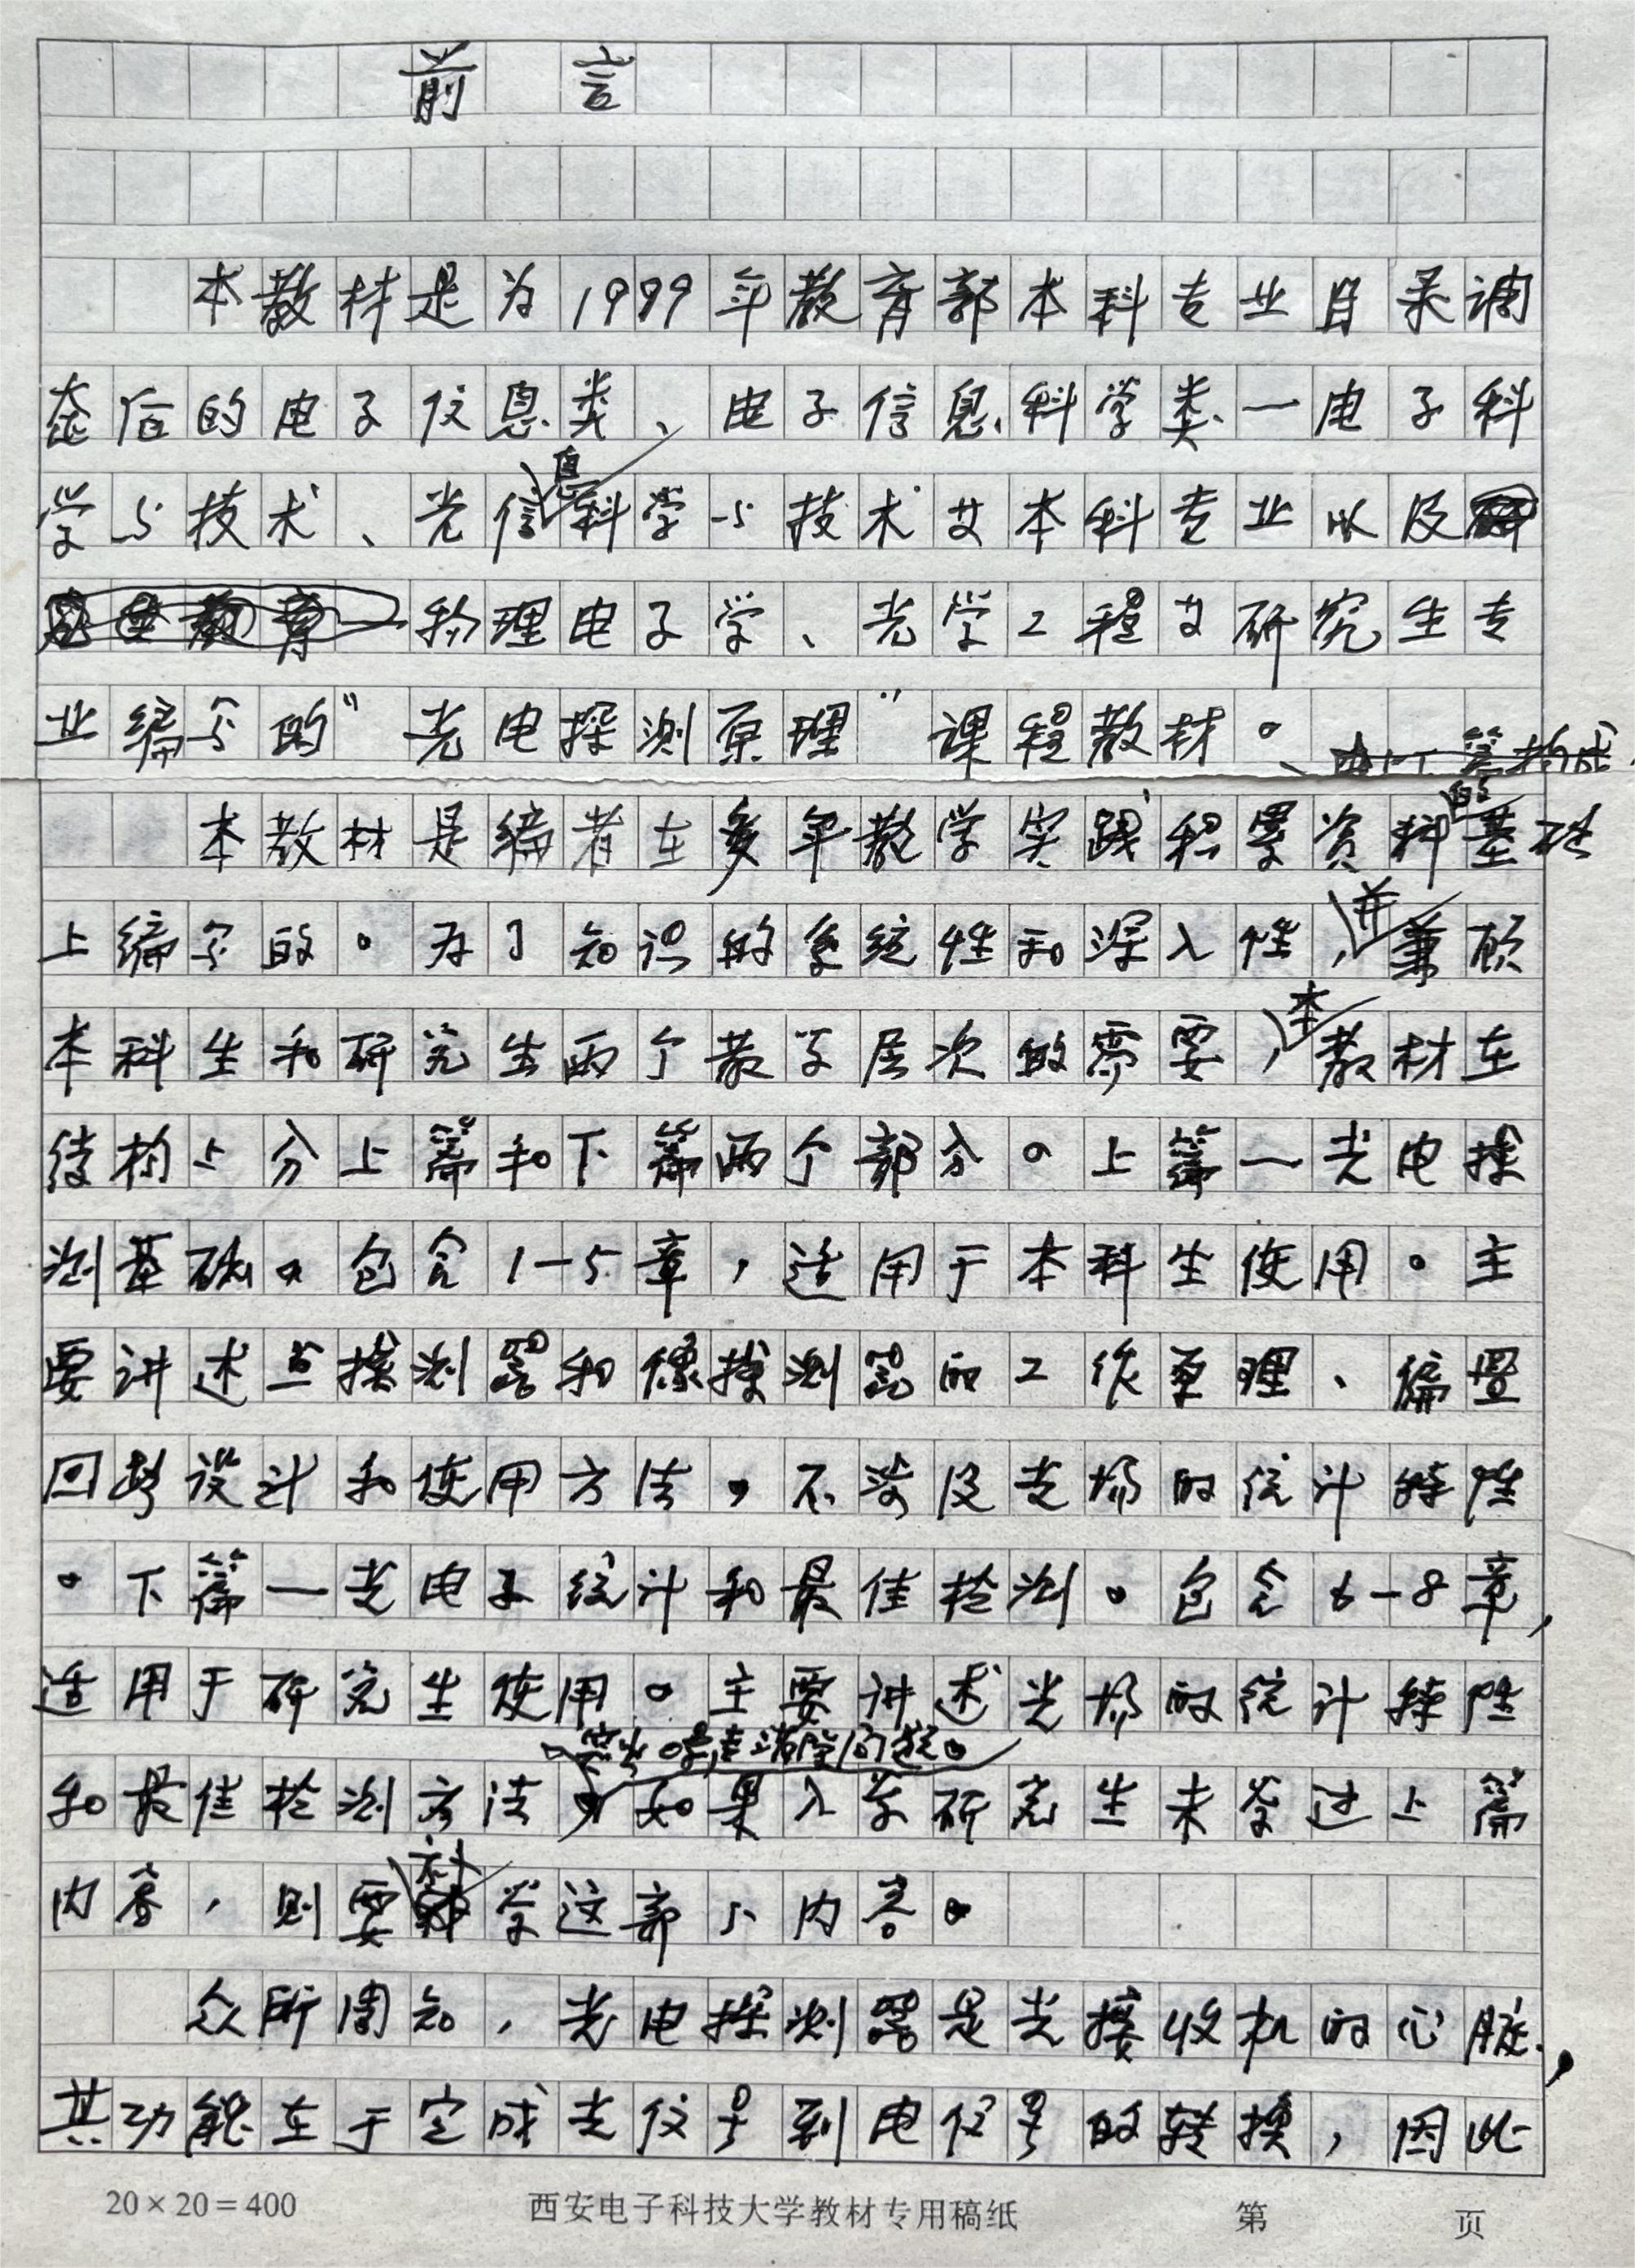 前言
本教材是为1999年教育部本科专业目录调
整后的电子信息类、电子信息科学类—电子科
学与技术、光信息科学与技术等本科专业以及
物理电子学、光学工程等研究生专
业编写的"光电探测原理"课程教材。
本教材是编者在多年教学实践积累资料的基础
上编写的。为了知识的系统性和深入性,并兼顾
本科生和研究生两个教学层次的需要,本教材在
结构上分上篇和下篇两个部分。上篇—光电探
测基础。包含1—5章,适用于本科生使用。主
要讲述点探测器和像探测器的工作原理、偏置
回路设计和使用方法。不涉及光场的统计特性
。下篇—光电子统计和最佳检测。包含6—8章,
适用于研究生使用。主要讲述光场的统计特性
和最佳检测方法,突出噪声清除问题。如果入学研究生未学过上篇
内容,则要补学这部分内容。
众所周知,光电探测器是光接收机的心脏,
其功能在于完成光信号到电信号的转换,因此
20×20=400 西安电子科技大学教材专用稿纸 第 页